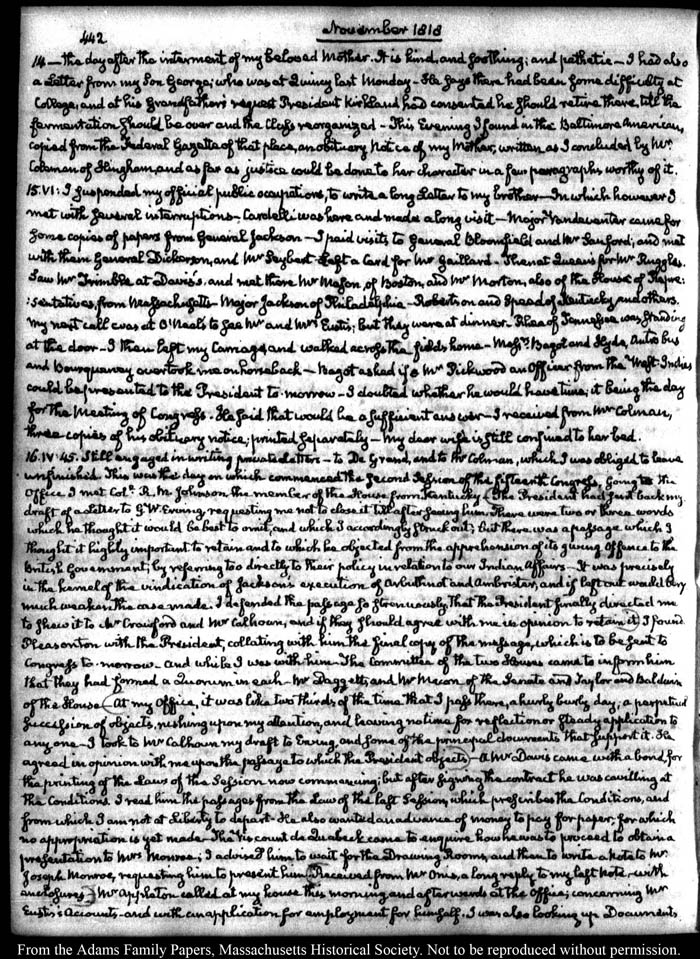 442 November 1818
14 — the day after the interment of my beloved Mother. It is kind, and soothing; and pathetic — I had also
a Letter from my Son George; who was at Quincy last Monday — He says there had been some difficulty at
College; and at his Grandfather's request President Kirkland had consented he should retire there, till the
fermentation should be over and the Class reorganized — This Evening I found in the Baltimore American,
copied from the Federal Gazette of that place, an obituary Notice of my Mother, written as I concluded by Mr
Colman of Hingham, and as far as justice could be done to her character in a few paragraphs worthy of it.
15. VI: I suspended my official public occupations, to write a long Letter to my brother — In which however I
met with several interruptions — Cardelli was here and made a long visit — Major Vandeventer came for
some copies of papers from General Jackson — I paid visits to General Bloomfield and Mr Sanford; and met
with them General Dickerson, and Mr Seybert. Left a Card for Mr Gaillard. Then at Queen's for Mr Ruggles.
Saw Mr Trimble at Davis's, and met there Mr Mason, of Boston, and Mr Morton, also of the House of Repre:
:sentatives, from Massachusetts — Major Jackson of Philadelphia — Robertson and Speed of Kentucky and others.
My next call was at O'Neal's to see Mr and Mrs Eustis; but they were at dinner — Rhea of Tennessee was standing
at the door — I then left my Carriage, and walked across the fields home — Messrs Bagot and Hyde,
and overtook me on horseback — Bagot asked if a Mr Pickwood an Officer from the West-Indies
could be presented to the President to-morrow — I doubted whether he would have time; it being the day
for the Meeting of Congress. He said that would be a sufficient answer — I received from Mr Colman,
three copies of his obituary notice; printed separately — My dear wife is still confined to her bed.
16. IV:45. Still engaged in writing private Letters — to De Grand, and to Mr Colman, which I was obliged to leave
unfinished. This was the day on which commenced the Second Session of the fifteenth Congress, Going to the
Office I met Coll. R. M. Johnson the member of the House from Kentucky — (The President had sent back my
draft of a Letter to G. W. Erving, requesting me not to close it till after seeing him. There were two or three words
which he thought it would be best to omit, and which I accordingly struck out; but there was a passage which I
thought it highly important to retain and to which he objected from the apprehension of its giving offence to the
British Government; by referring too directly to their policy in relation to our Indian Affairs — It was precisely
in the kernel of the vindication of Jackson's execution of Arbuthnot and Ambrister, and if left out would very
much weaken the case made. I defended the passage so strenuously, that the President finally directed me
to shew it to Mr Crawford and Mr Calhoun; and if they should agree with me in opinion to retain it; I found
Pleasonton with the President, collating with him the final copy of the message, which is to be sent to
Congress to-morrow — And while I was with him — The Committee of the two Houses came to inform him
that they had formed a Quorum in each — Mr Daggett, and Mr Macon of the Senate and Taylor and Baldwin
of the House (At my Office, it was like two thirds of the time that I pass there, a hurly burly day; a perpetual
succession of objects, rushing upon my attention, and leaving no time for reflection or steady application to
any one — I took to Mr Calhoun my draft to Erving, and some of the principal documents that support it. He
agreed in opinion with me upon the passage to which the President objects) — A Mr Davis came with a bond, for
the printing of the Laws of the Session now commencing; but after signing the contract he was cavilling at
the Conditions. I read him the passages from the Law of the last Session, which prescribes the Conditions, and
from which I am not at Liberty to depart. He also wanted an advance of money to pay for paper; for which
no appropriation is yet made — The Viscount de Quabeck came to enquire how he was to proceed to obtain a
presentation to Mrs Monroe; I advised him to wait for the Drawing Rooms, and then to write a Note to Mr
Joseph Monroe, requesting him to present him (Received from Mr Onis, a long reply to my last Note with
enclosures) Mr Appleton called at my house this morning and afterwards at the Office; concerning Mr
Eustis's Accounts — and with an application for employment for himself. I was also looking up Documents
From the Adams Family Papers, Massachusetts Historical Society. Not to be reproduced without permission.